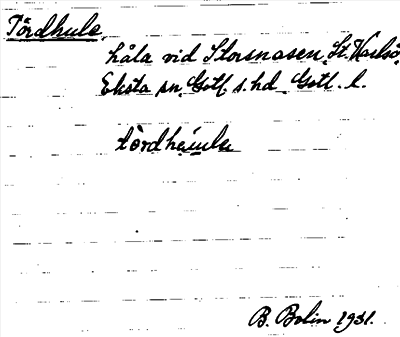 Tördhule
håla vid Storsnasen, St. Karlsö,
Eksta sn, Gotl. s. hd Gotl. l.
tördheiule
B. Bolin 1931.